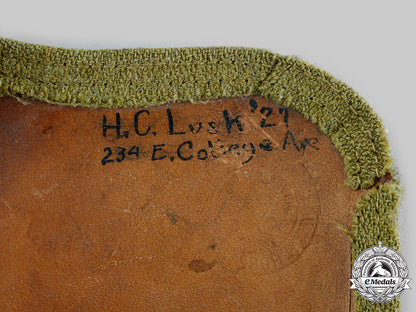 H.C. Lusk '27
234 E. College Ave
eMedals